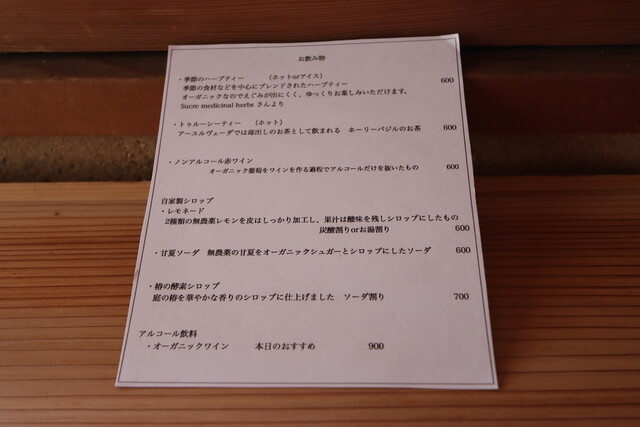 お飲み物
・季節のハーブティー （ホットorアイス） 600
季節の食材などを中心にブレンドされたハーブティー
オーガニックなのでえぐみが出にくく、ゆっくりお楽しみいただけます。
Sucre medicinal herbs さんより
・トゥルーシーティー （ホット）
アーユルヴェーダでは毒出しのお茶として飲まれる ホーリーバジルのお茶 600
・ノンアルコール赤ワイン
オーガニック葡萄をワインを作る過程でアルコールだけを抜いたもの 600
自家製シロップ
・レモネード
2種類の無農薬レモンを皮はしっかり加工し、果汁は酸味を残しシロップにしたもの
炭酸割りorお湯割り 600
・甘夏ソーダ 無農薬の甘夏をオーガニックシュガーとシロップにしたソーダ 600
・椿の酵素シロップ
庭の椿を華やかな香りのシロップに仕上げました ソーダ割り 700
アルコール飲料
・オーガニックワイン 本日のおすすめ 900